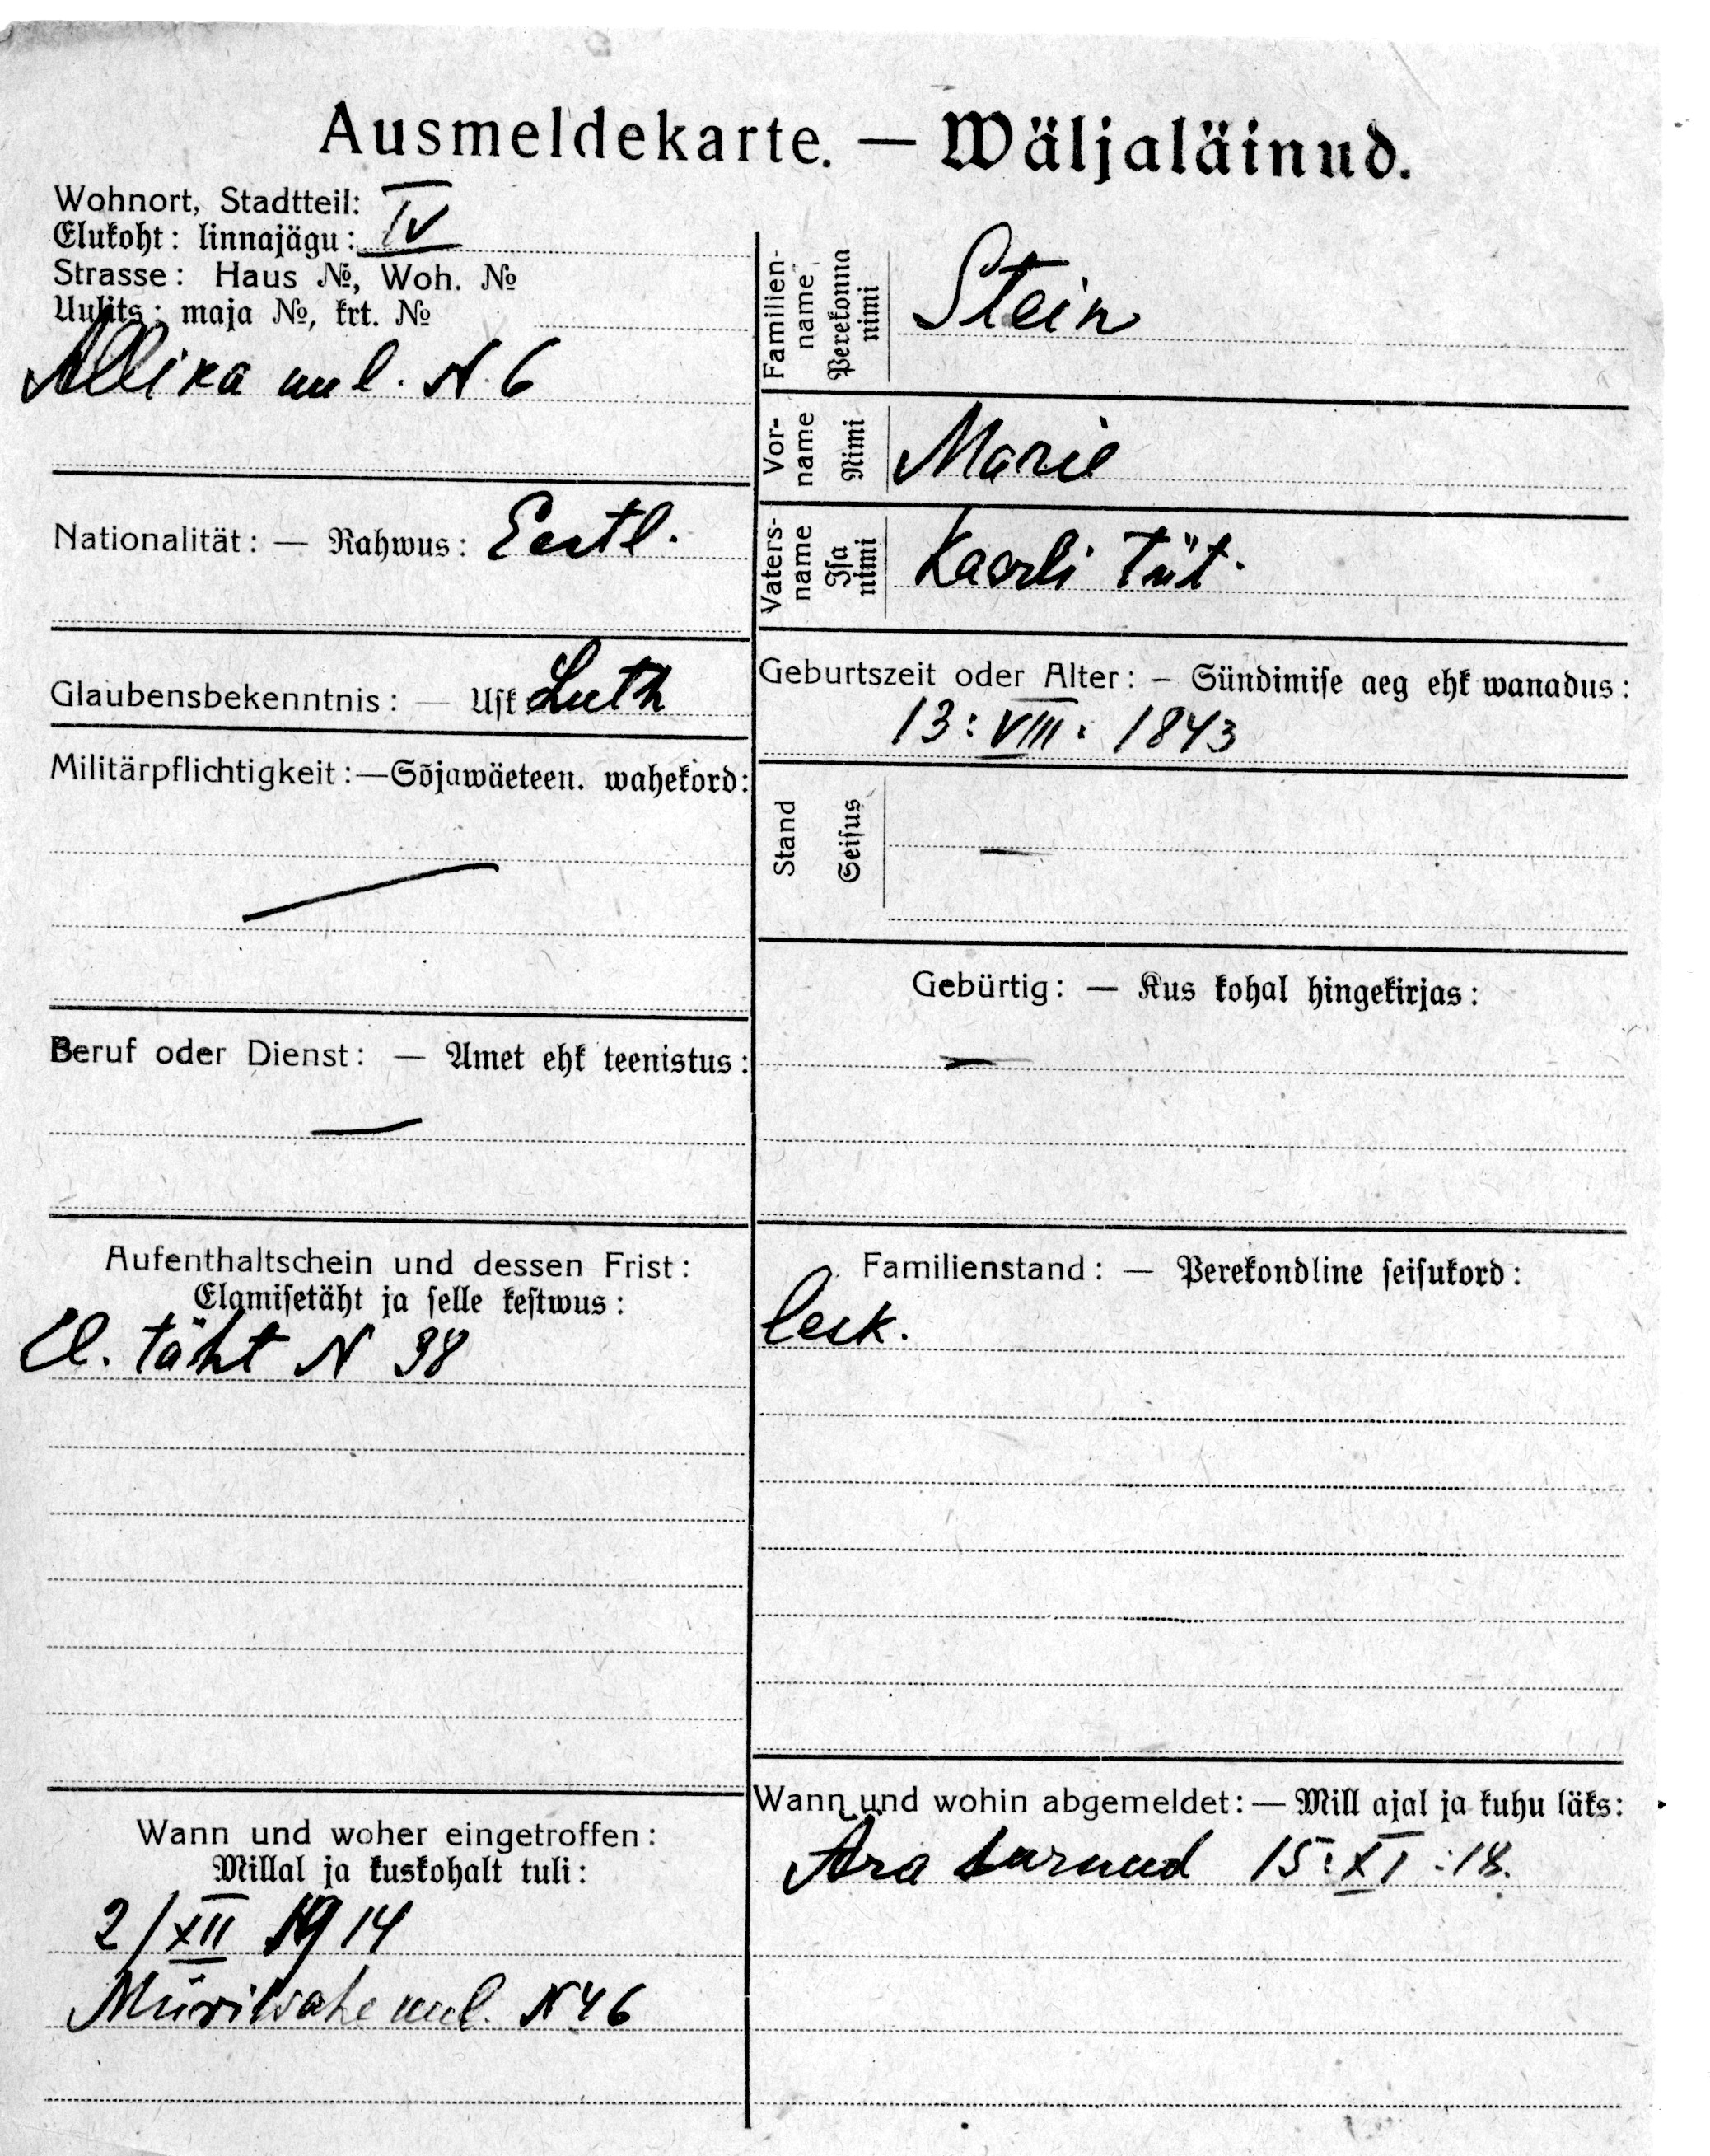 Ausmeldekarte. — Wäljaläinud.
Wohnort, Stadtteil:
Elukoht: linnajägu: IV
Strasse: Haus №, Woh. №
Uulits: maja №, krt. №
Allika uul. N. 6
Nationalität: — Rahwus: Eestl.
Glaubensbekenntnis: — Usk Luth
Militärpflichtigkeit: — Sõjawäeteen. wahekord:
Beruf oder Dienst: — Amet ehk teenistus:
Aufenthaltschein und dessen Frist:
Elamisetäht ja selle kestwus:
El. täht N 38
Wann und woher eingetroffen:
Millal ja kuskohalt tuli:
2/XII 1914
Müriwahe uul. N 46
Familien-
name
Perekonna
nimi
Stein
Vor-
name
Nimi
Marie
Vaters-
name
Isa
nimi
Kaarli tüt.
Geburtszeit oder Alter: — Sündimise aeg ehk wanadus:
13: VIII: 1843
Stand
Seisus
—
Gebürtig: — Kus kohal hingekirjas:
—
Familienstand: — Perekondline seisukord:
lesk.
Wann und wohin abgemeldet: — Mill ajal ja kuhu läks:
Ära surnud 15: XI :18.